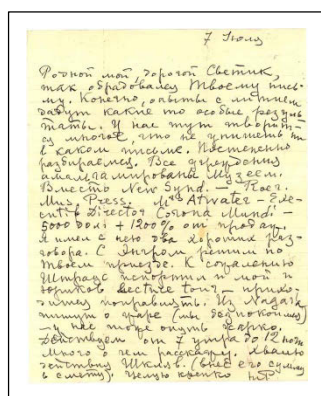 7 Июля
Родной мой, дорогой Светик,
так обрадовался Твоему пись-
му. Конечно, опыты с литием
дадут какие то особые резуль
таты. У нас тут творит
ся многое, что не упишешь ни
в каком письме. Постепенно
разбираемся. Все учреждения
амальгамированы Музеем.
Вместо New Synd. — Roer.
Mus. Press. Mrs Atwater – Exe-
cutive Director Corona Mundi –
5000 дол. + 1200% от продаж.
Я имел с нею два хороших раз-
говора. С Энгром решим по
Твоем приезде. К сожалению
Штраус испортил и мой и
Юриков lecture tour, – прихо-
дится поправлять. Из Nagara
пишут о жаре (мы беспокоимся)
– у нас тоже опять жарко.
Действуем от 7 утра до 12 ночи
Много о чем расскажу. Хвалю
действия Шкляв. (внес его сумму
в смету). Целую крепко
НР